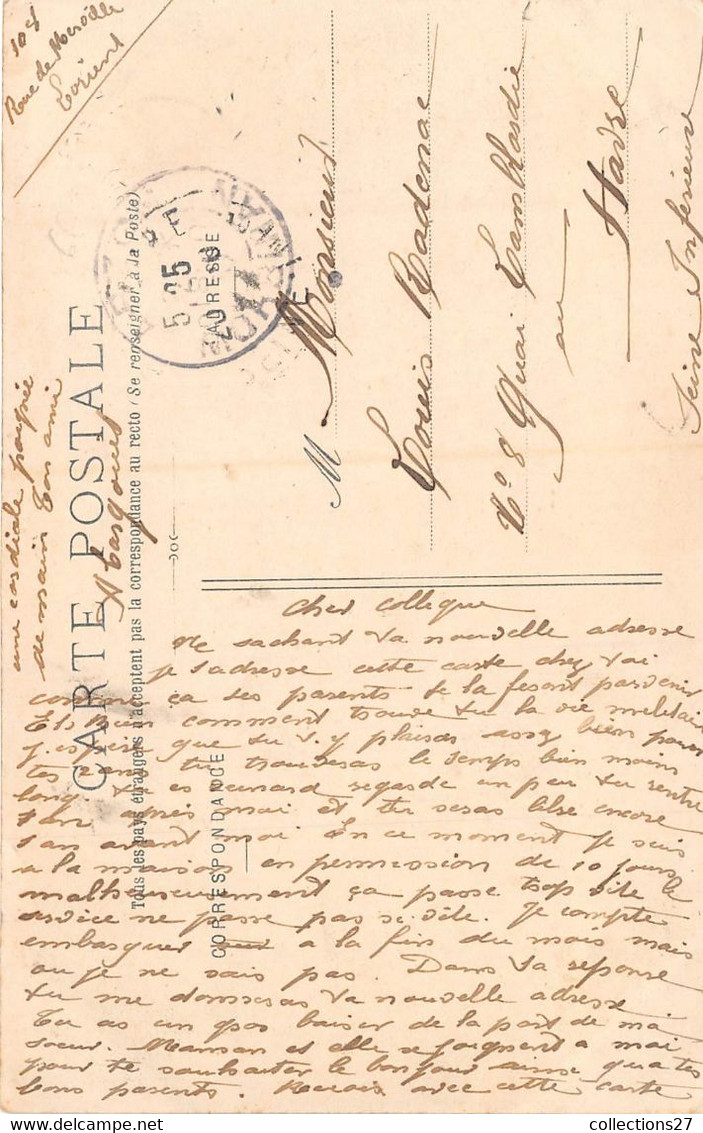 108
Rue de Merville
Lorient
CARTE POSTALE
Tous les pays étrangers n'acceptent pas la correspondance au recto (Se renseigner à la Poste)
CORRESPONDANCE
ADRESSE
5-25
M Monsieur
Louis Kadenac
N° 8 Quai Lamblardie
au
Havre
Seine Inférieure
Cher Collegue
Ne sachant ta nouvelle adresse
je t'adresse cette carte chez toi
comme ça tes parents te la feront parvenir
Et Bien comment trouve tu la vie militaire
j'espère que tu t'y plaises assez bien pour
tes 2 ans tu trouveras le temps bien moins
long. tu es veinard regarde un peu tu rentre
1 an après moi et tu seras libre encore
1 an avant moi. En ce moment je suis
a la maison en permission de 10 jours
malheureusement ça passe trop vite le
service ne passe pas si vite. Je compte
embarquer a la fin du mois mais
ou je ne sais pas. Dans ta reponse
tu me donneras ta nouvelle adresse
Tu as un gros baiser de la part de ma
soeur. Maman et elle se joignent a moi
pour te souhaiter le bonjour ainsi qu'a tes
bons parents. Recois avec cette carte
une cordiale poignée
de main ton ami
collections27